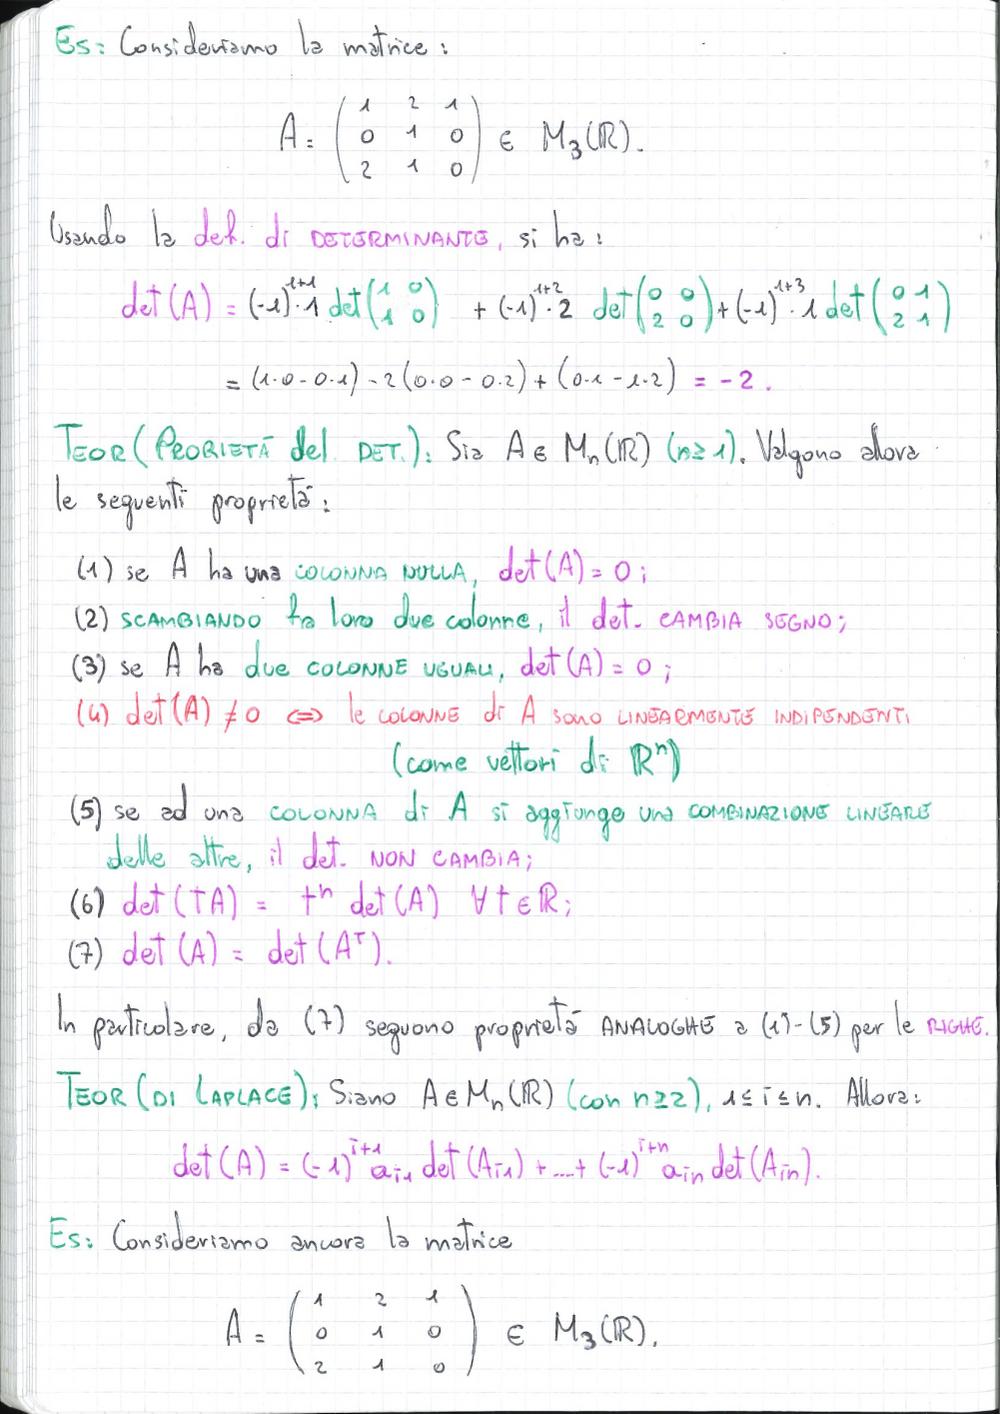 Es: Consideriamo la matrice:
A = ( 1 2 1
0 1 0
2 1 0 ) ∈ M₃(ℝ).
Usando la def. di DETERMINANTE, si ha:
det(A) = (-1)¹⁺¹·1 det( 1 0 ; 1 0 ) + (-1)¹⁺²·2 det( 0 0 ; 2 0 ) + (-1)¹⁺³·1 det( 0 1 ; 2 1 )
= (1·0 - 0·1) - 2(0·0 - 0·2) + (0·1 - 1·2) = -2.
TEOR (PROPRIETÀ del DET.): Sia A ∈ Mₙ(ℝ) (n≥1). Valgono allora
le seguenti proprietà:
(1) se A ha una COLONNA NULLA, det(A) = 0;
(2) SCAMBIANDO tra loro due colonne, il det. CAMBIA SEGNO;
(3) se A ha due COLONNE UGUALI, det(A) = 0;
(4) det(A) ≠ 0 ⇔ le COLONNE di A sono LINEARMENTE INDIPENDENTI
(come vettori di ℝⁿ)
(5) se ad una COLONNA di A si aggiunge una COMBINAZIONE LINEARE
delle altre, il det. NON CAMBIA;
(6) det(tA) = tⁿ det(A) ∀ t ∈ ℝ;
(7) det(A) = det(Aᵀ).
In particolare, da (7) seguono proprietà ANALOGHE a (1)-(5) per le RIGHE.
TEOR (DI LAPLACE): Siano A ∈ Mₙ(ℝ) (con n≥2), 1≤i≤n. Allora:
det(A) = (-1)ⁱ⁺¹ aᵢ₁ det(Aᵢ₁) + ... + (-1)ⁱ⁺ⁿ aᵢₙ det(Aᵢₙ).
Es: Consideriamo ancora la matrice
A = ( 1 2 1
0 1 0
2 1 0 ) ∈ M₃(ℝ).